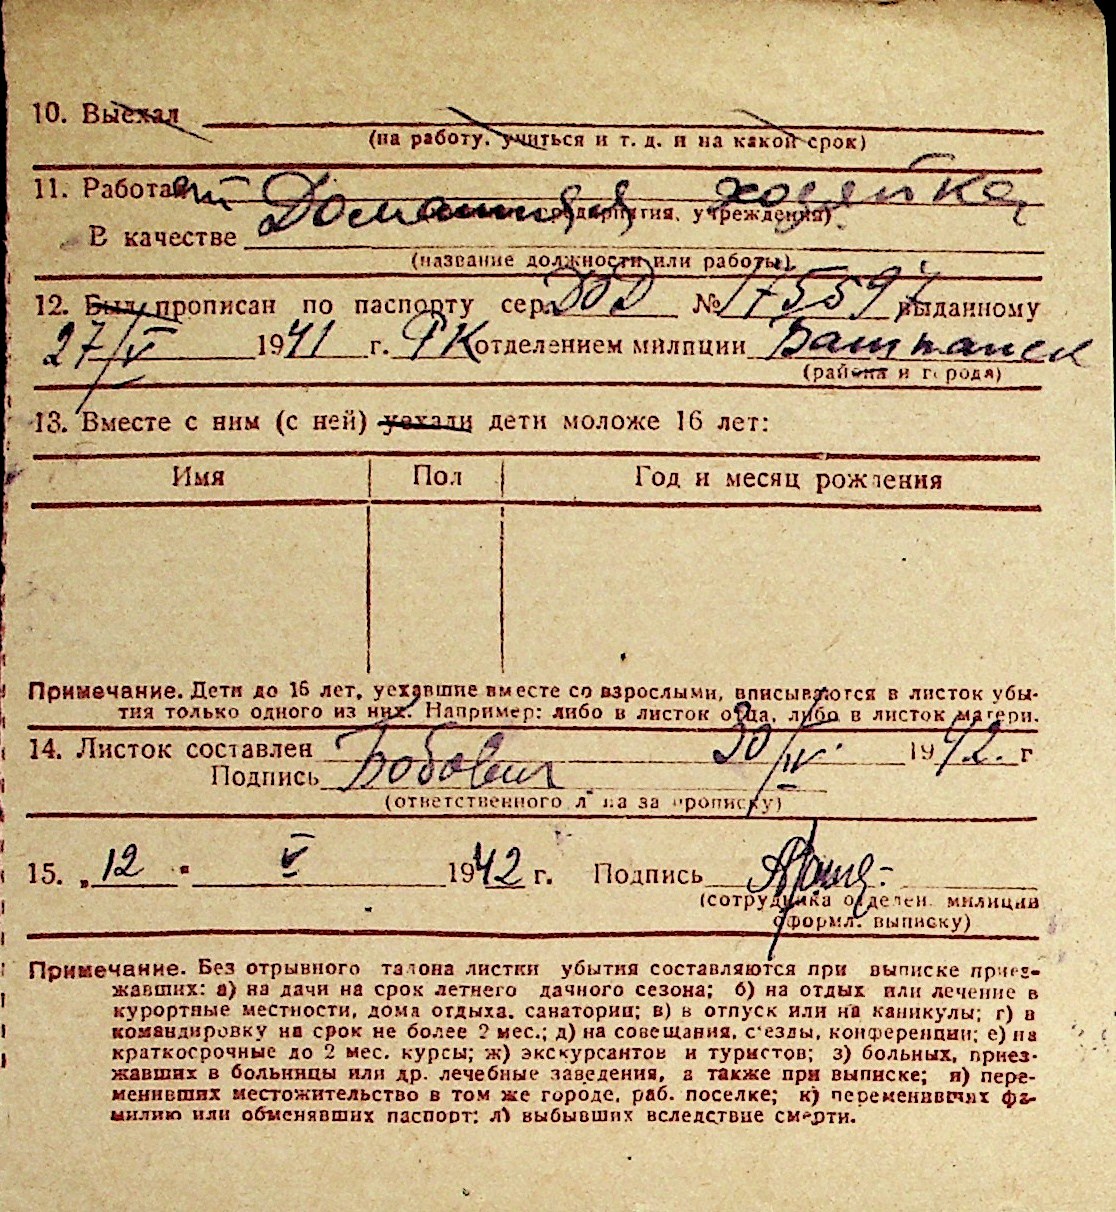 10. Выехал
(на работу, учиться и т. д. и на какой срок)
11. Работает Домашняя хозяйка
предприятия, учреждения)
В качестве
(название должности или работы)
12. Был прописан по паспорту сер. № 175597 выданному
27/V 1941 г. РК отделением милиции
(района и города)
13. Вместе с ним (с ней) уехали дети моложе 16 лет:
Имя Пол Год и месяц рождения
Примечание. Дети до 16 лет, уехавшие вместе со взрослыми, вписываются в листок убы-
тия только одного из них. Например: либо в листок отца, либо в листок матери.
14. Листок составлен 30/IV 1942. г
Подпись Бобович
(ответственного лица за прописку)
15. „12" V 1942 г. Подпись
(сотрудника отделен. милиции
оформл. выписку)
Примечание. Без отрывного талона листки убытия составляются при выписке приез-
жавших: а) на дачи на срок летнего дачного сезона; б) на отдых или лечение в
курортные местности, дома отдыха, санатории; в) в отпуск или на каникулы; г) в
командировку на срок не более 2 мес.; д) на совещания, съезды, конференции; е) на
краткосрочные до 2 мес. курсы; ж) экскурсантов и туристов; з) больных, приез-
жавших в больницы или др. лечебные заведения, а также при выписке; и) пере-
менивших местожительство в том же городе, раб. поселке; к) переменивших фа-
милию или обменявших паспорт; л) выбывших вследствие смерти.